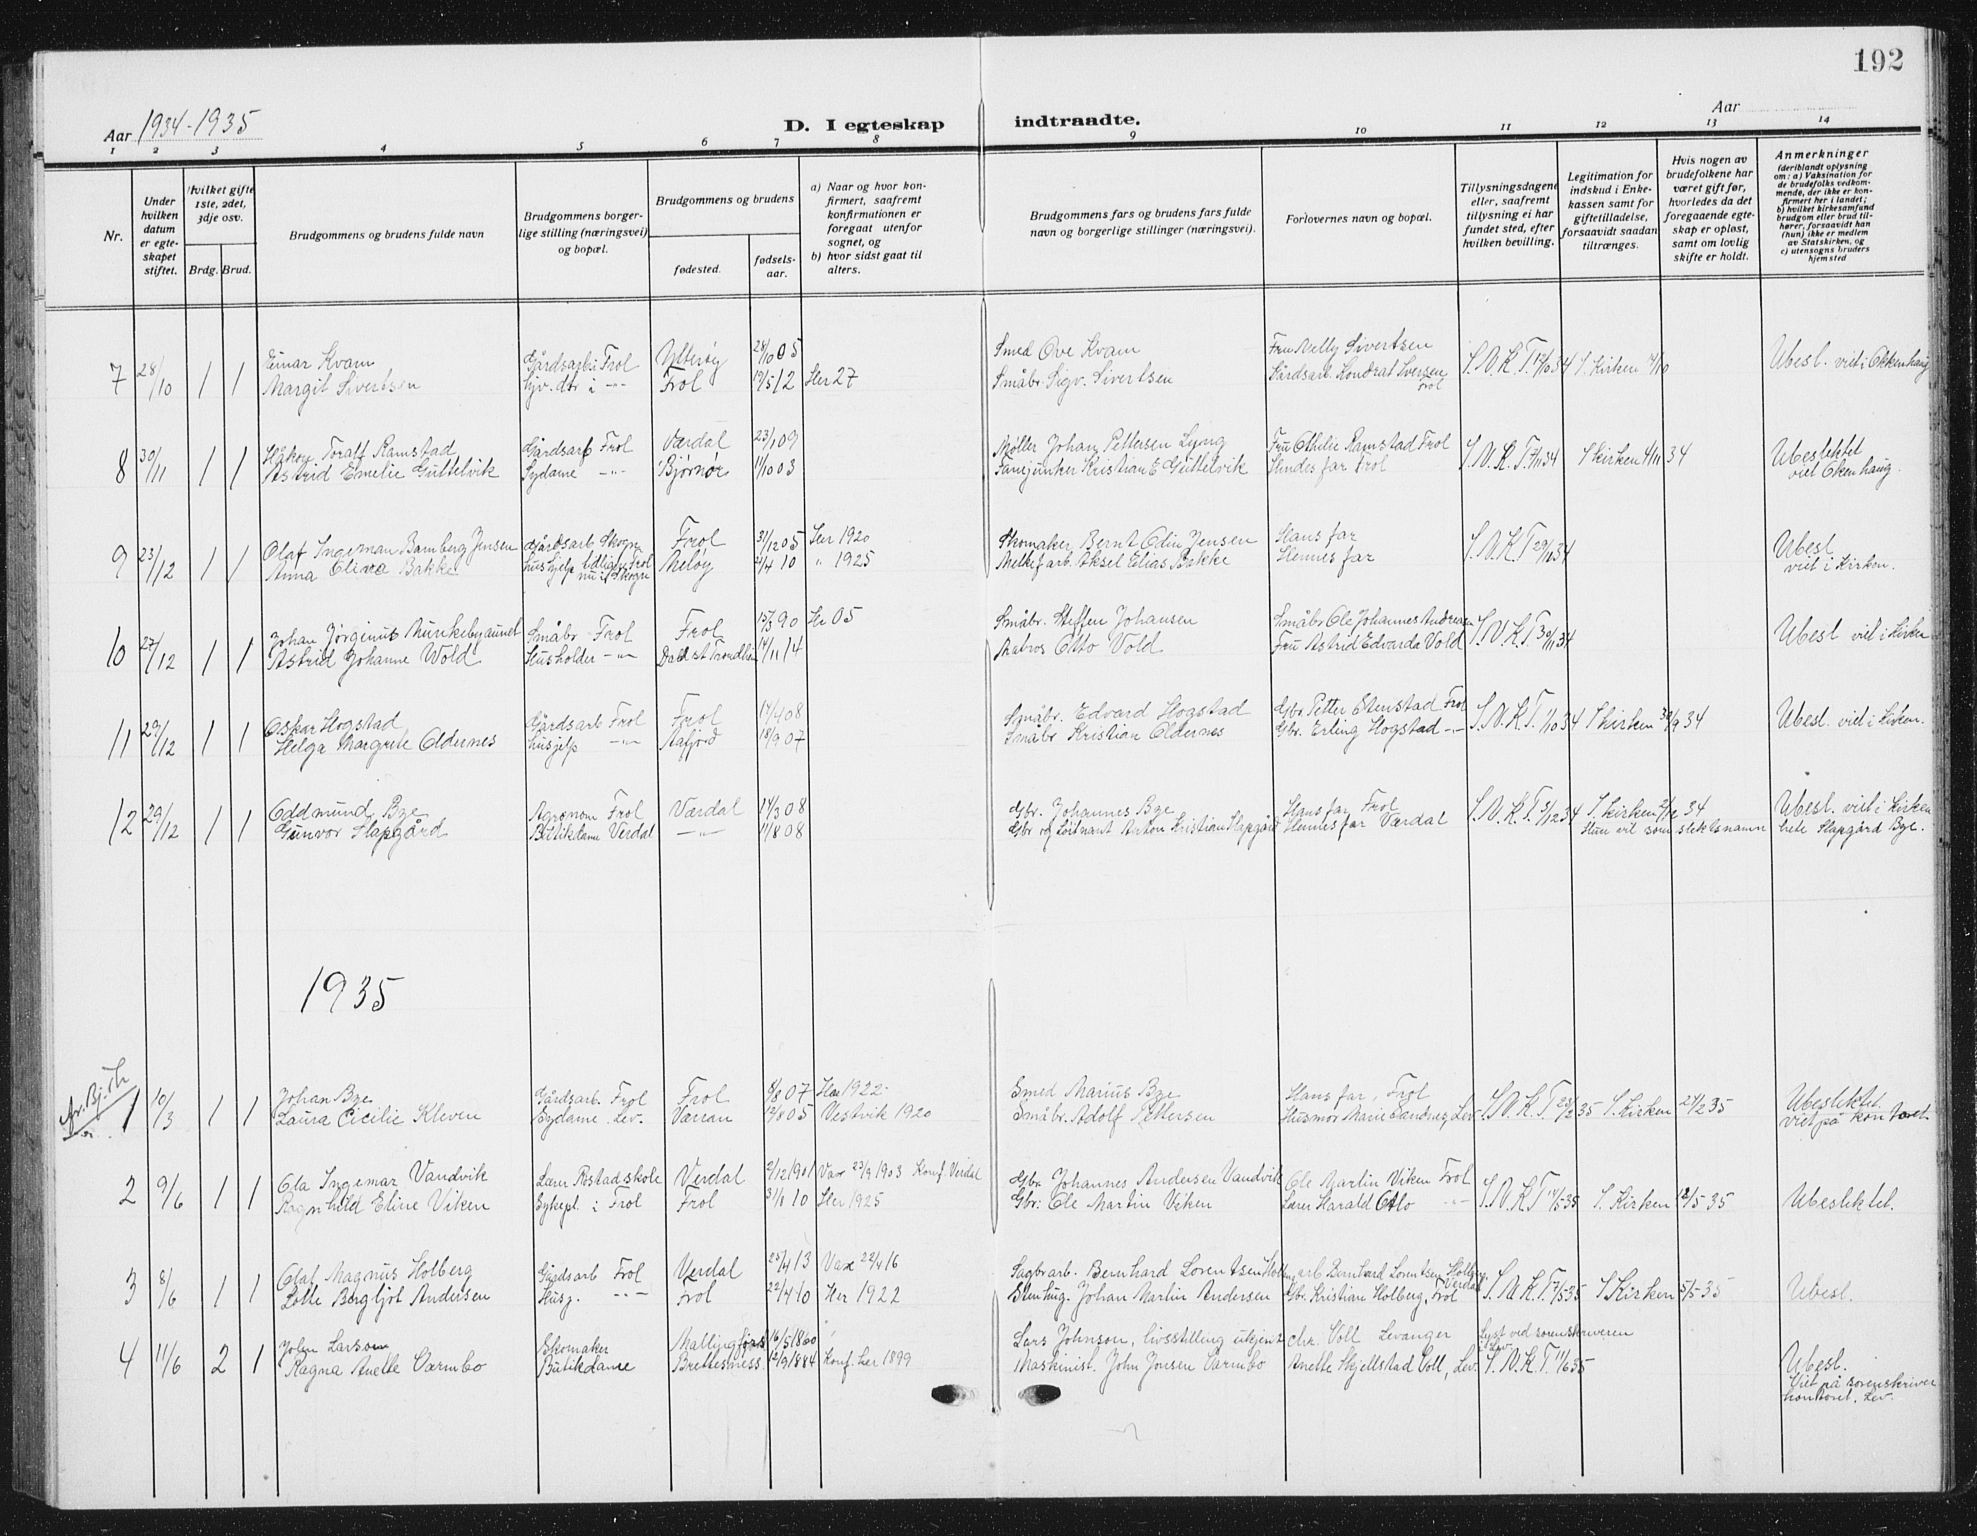 192
Aar 1934-1935
D. I egteskap indtraadte.
Aar
1 2 3 4 5 6 7 8 9 10 11 12 13 14
Nr.
Under hvilken datum er egteskapet stiftet.
Hvilket gifte 1ste, 2det, 3dje osv.
Brdg. Brud.
Brudgommens og brudens fulde navn
Brudgommens borgerlige stilling (næringsvei) og bopæl.
Brudgommens og brudens
fødested.
fødselsaar.
a) Naar og hvor konfirmert, saafremt konfirmationen er foregaat utenfor sognet, og
b) hvor sidst gaat til alters.
Brudgommens fars og brudens fars fulde navn og borgerlige stillinger (næringsvei).
Forlovernes navn og bopæl.
Tillysningsdagene eller, saafremt tillysning ei har fundet sted, efter hvilken bevilling.
Legitimation for indskud i Enkekassen samt for giftetilladelse, forsaavidt saadan tiltrænges.
Hvis nogen av brudefolkene har været gift før, hvorledes da det foregaaende egteskap er opløst, samt om lovlig skifte er holdt.
Anmerkninger
(deriblandt oplysning om: a) Vaksination for de brudefolks vedkommende, der ikke er konfirmert her i landet; b) hvilket kirkesamfund brudgom eller brud tilhører, forsaavidt han (hun) ikke er medlem av Statskirken, og c) utensogns bruders hjemsted
7 28/10 1 1 Einar Kvam Gårdsarb. Frol Ytterøy 28/10 05 Smed Ove Kvam Fru Nelly Sivertsen S.N.K.T. 12/10 34 S. Kirken Ubesl. viet i Okkenhaug
Margit Sivertsen Gjv. dtr i -"- Frol 19/5 12 Her 27 Småbr. Sigv. Sivertsen Gårdsarb. Kondrat Iversen Frol
8 30/11 1 1 Håkon Toralf Ramstad Gårdsarb Frol Værdal 23/1 09 Møller Johan Pettersen Lyng Fru Othilie Ramstad Frol S.N.K.T. 7/11 34 S kirken 4/11 34 Ubeslektet
Astrid Emelie Guttelvik Sydame -"- Bjørnør 11/10 03 Kristian E Guttelvik Hindes far Frol viet Okenhaug.
9 23/12 1 1 Olaf Ingeman Bamberg Jensen Gårdsarb Skogn Frol 31/12 05 Her 1920 Skomaker Bernt Odin Jensen Hans far S.N.K.T 29/11 34 Ubesl.
Anna Elina Bakke hushjelp tidligere Frol nu i Skogn Meløy 21/4 10 " 1925 Melkefarb. Aksel Elias Bakke Hennes far viet i Kirken.
10 27/12 1 1 Johan Jørginus Munkebyaunet Småbr. Frol Frol 15/3 90 Her 05 Småbr. Steffen Johansen Småbr Ole Johannes Andreas S.N.K.T. 30/11 34 Ubesl viet i Kirken
Astrid Johanne Wold Husholder -"- 14/11 14 Matros Otto Vold Fru Astrid Edvarda Vold
11 29/12 1 1 Oskar Hogstad Gårdsarb Frol Frol 17/4 08 Småbr. Edvard Hogstad Gbr. Petter Stenstad Frol S.N.K.T. 1/10 34 S kirken 30/9 34 Ubesl. viet i Kirken.
Helga Margrete Oldernes husjelp -"- Aafjord 18/9 07 Småbr Kristian Oldernes Gbr. Erling Hogstad -"-
12 29/12 1 1 Oddmund Bye Agronom Frol Værdal 24/3 08 Gbr. Johannes Bye Hans far Frol S.N.K.T. 3/12 34 S. kirken 2/12 34 Ubesl. viet i Kirken
Gunvor Slapgård Butikdame Verdal -"- 11/8 08 Gbr og Løitnant Anton Kristian Slapgård Hennes far Værdal Hun vil som slektsnamn hete Slapgård Bye.
1935
1 10/3 1 1 Johan Bye Gårdsarb. Frol Frol 8/8 07 Her 1922 Smed Marius Bye Hans far, Frol S.N.K.T 23/2 35 S. Kirken 24/2 35 Ubeslektet.
Laura Cicilie Kleven Sydame. Lev. Værran 12/8 05 Vestvik 1920 Småbr. Adolf Pettersen Husmor Marie Sandnes, Lev. viet på kontoret.
2 9/6 1 1 Ola Ingemar Vandvik Lærer Røstad skole Verdal 2/12 1901 Vax 23/9 1903 Konf. Verdal Gbr. Johannes Andersen Vandvik Ole Martin Viken Frol S.N.K.T 11/5 35 S. Kirken 12/5 35 Ubeslektet.
Ragnhild Eline Viken Sykepl. i Frol Frol 31/1 10 Her 1925 Gbr. Ole Martin Viken Lærer Harald Otlo -"-
3 8/6 1 1 Olaf Magnus Holberg Gårdsarb Frol Verdal 25/4 13 Vax 22/4 16 Sagbrarb. Bernhard Lorentsen Holberg arb Bernhard Lorentsen Holberg Verdal S.N.K.T 7/5 35 S Kirken 5/5 35 Ubesl.
Lotte Bergljot Andersen Husg. -"- Frol 22/4 10 Her 1922 Stenhug. Johan Martin Andersen Gbr. Kristian Holberg, Frol
4 11/6 2 1 John Larsson Skomaker 16/5 1860 Lars Johnson, livsstilling ukjent Chr. Voll Levanger Lyst ved sorenskriveren i Lev. Ubesl.
Ragna Anette Værmbo Butikdame Brettesness 12/9 1884 Konf. her 1899 Maskinist. John Jonsen Værmbo Anette Skjellstad Voll, Lev. S.N.K.T 11/6 35 Viet på sorenskriverkontoret. Lev.